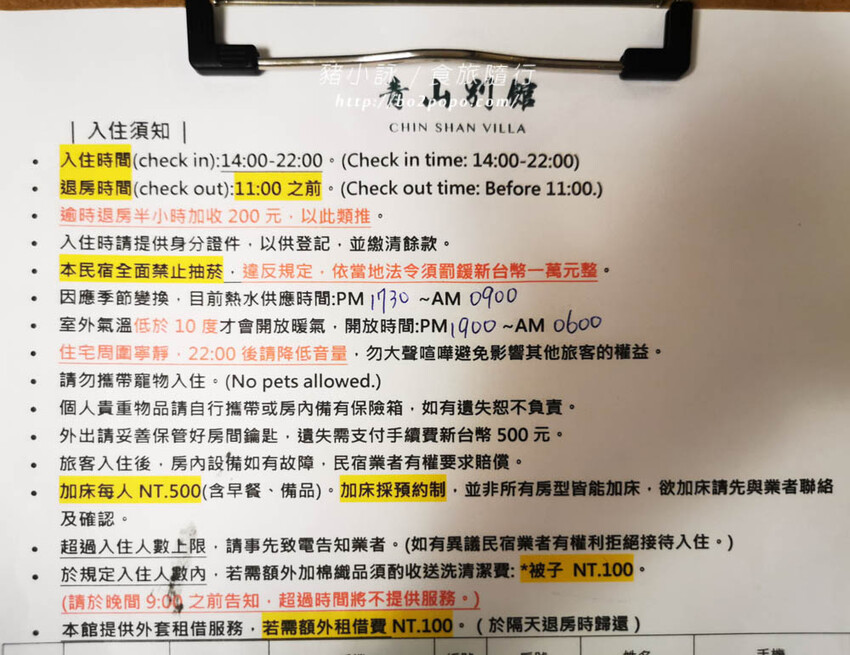 豬小詠 / 食旅隨行
青山別館
http://bo2popo.com/
CHIN SHAN VILLA
| 入住須知 |
• 入住時間(check in):14:00-22:00。(Check in time: 14:00-22:00)
• 退房時間(check out):11:00 之前。(Check out time: Before 11:00.)
• 逾時退房半小時加收 200 元，以此類推。
• 入住時請提供身分證件，以供登記，並繳清餘款。
• 本民宿全面禁止抽菸，違反規定，依當地法令須罰鍰新台幣一萬元整。
• 因應季節變換，目前熱水供應時間:PM 1730 ~AM 0900
• 室外氣溫低於 10 度才會開放暖氣，開放時間:PM1900 ~AM 0600
• 住宅周圍寧靜，22:00 後請降低音量，勿大聲喧嘩避免影響其他旅客的權益。
• 請勿攜帶寵物入住。(No pets allowed.)
• 個人貴重物品請自行攜帶或房內備有保險箱，如有遺失恕不負責。
• 外出請妥善保管好房間鑰匙，遺失需支付手續費新台幣 500 元。
• 旅客入住後，房內設備如有故障，民宿業者有權要求賠償。
• 加床每人 NT.500(含早餐、備品)。加床採預約制，並非所有房型皆能加床，欲加床請先與業者聯絡
及確認。
• 超過入住人數上限，請事先致電告知業者。(如有異議民宿業者有權利拒絕接待入住。)
• 於規定入住人數內，若需額外加棉織品須酌收送洗清潔費: *被子 NT.100。
(請於晚間 9:00 之前告知，超過時間將不提供服務。)
• 本館提供外套租借服務，若需額外租借費 NT.100。（於隔天退房時歸還）
姓名 手機